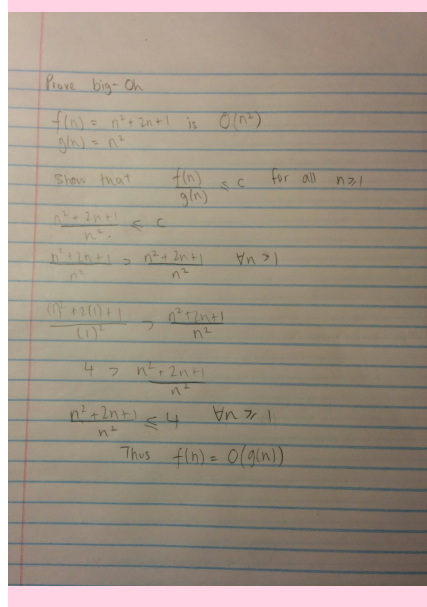 Prove big-Oh
f(n) = n² + 2n + 1 is O(n²)
g(n) = n²
Show that f(n)/g(n) ≤ c for all n ≥ 1
n² + 2n + 1/n² ≤ c
n² + 2n + 1/n² > n² + 2n + 1/n² ∀n > 1
(1)² + 2(1) + 1/(1)² > n² + 2n + 1/n²
4 > n² + 2n + 1/n²
n² + 2n + 1/n² ≤ 4 ∀n ≥ 1
Thus f(n) = O(g(n))